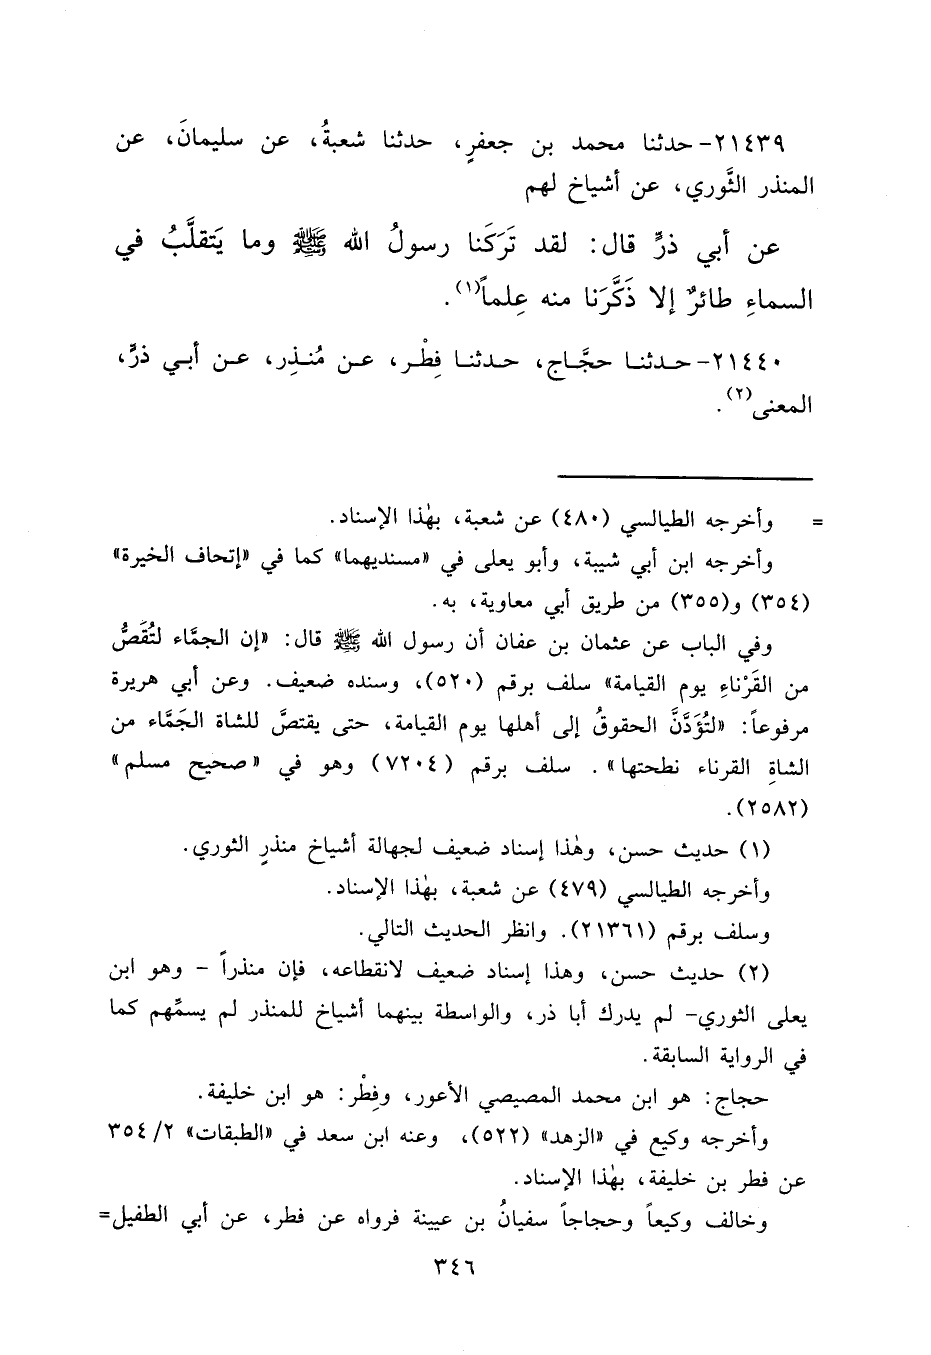 ٢١٤٣٩- حدثنا محمد بن جعفرٍ، حدثنا شعبةُ، عن سليمانَ، عن
المنذر الثَّوري، عن أشياخ لهم
عن أبي ذرٍّ قال: لقد تَرَكَنا رسولُ الله ﷺ وما يَتقلَّبُ في
السماءِ طائرٌ إلا ذَكَّرَنا منه عِلماً(١).
٢١٤٤٠- حدثنا حجَّاج، حدثنا فِطْر، عن مُنذِر، عن أبي ذرٍّ،
المعنى(٢).
= وأخرجه الطيالسي (٤٨٠) عن شعبة، بهٰذا الإسناد.
وأخرجه ابن أبي شيبة، وأبو يعلى في «مسنديهما» كما في «إتحاف الخيرة»
(٣٥٤) و(٣٥٥) من طريق أبي معاوية، به.
وفي الباب عن عثمان بن عفان أن رسول الله ﷺ قال: «إن الجمَّاء لتُقَصُّ
من القَرْناءِ يوم القيامة» سلف برقم (٥٢٠)، وسنده ضعيف. وعن أبي هريرة
مرفوعاً: «لتُؤَدَّنَّ الحقوقُ إلى أهلها يوم القيامة، حتى يقتصَّ للشاة الجَمَّاء من
الشاةِ القرناء نطحتها». سلف برقم (٧٢٠٤) وهو في «صحيح مسلم»
(٢٥٨٢).
(١) حديث حسن، وهٰذا إسناد ضعيف لجهالة أشياخ منذرٍ الثوري.
وأخرجه الطيالسي (٤٧٩) عن شعبة، بهٰذا الإسناد.
وسلف برقم (٢١٣٦١). وانظر الحديث التالي.
(٢) حديث حسن، وهذا إسناد ضعيف لانقطاعه، فإن منذراً - وهو ابن
يعلى الثوري- لم يدرك أبا ذر، والواسطة بينهما أشياخ للمنذر لم يسمِّهم كما
في الرواية السابقة.
حجاج: هو ابن محمد المصيصي الأعور، وفِطْر: هو ابن خليفة.
وأخرجه وكيع في «الزهد» (٥٢٢)، وعنه ابن سعد في «الطبقات» ٢/ ٣٥٤
عن فطر بن خليفة، بهٰذا الإسناد.
وخالف وكيعاً وحجاجاً سفيانُ بن عيينة فرواه عن فطر، عن أبي الطفيل=
٣٤٦